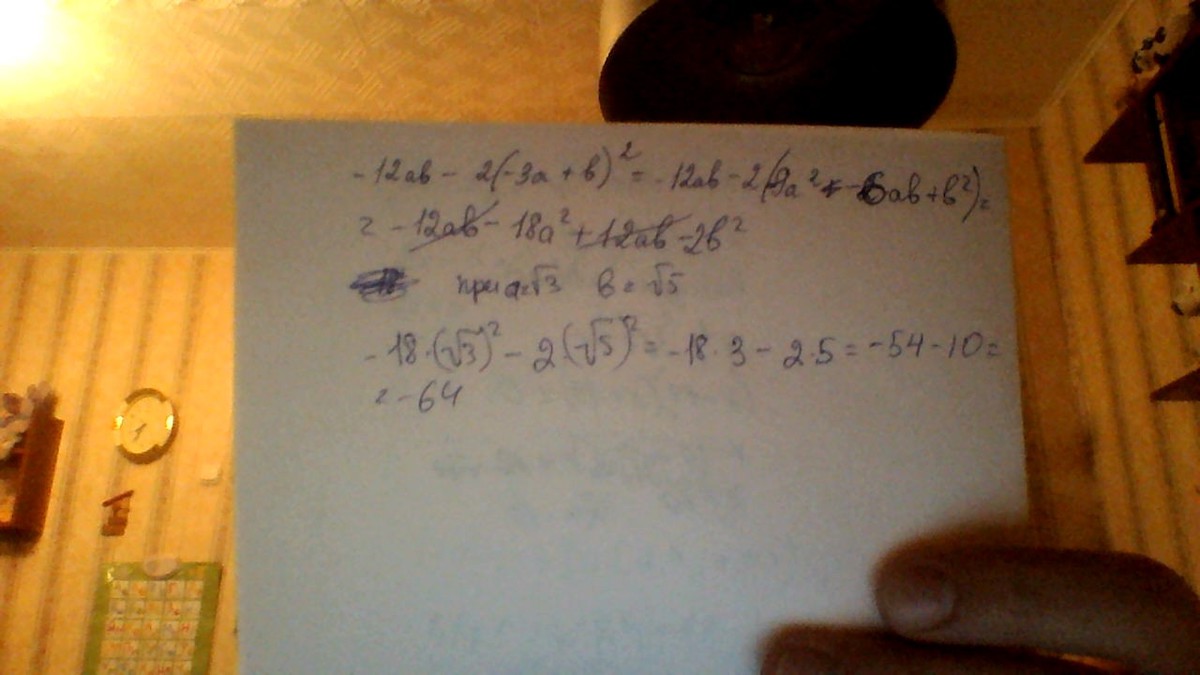 -12ab - 2(-3a + b)² = -12ab - 2(9a² - 6ab + b²) =
= -12ab - 18a² + 12ab - 2b²
при a=√3 b = √5
-18·(√3)² - 2(√5)² = -18·3 - 2·5 = -54 - 10 =
= -64